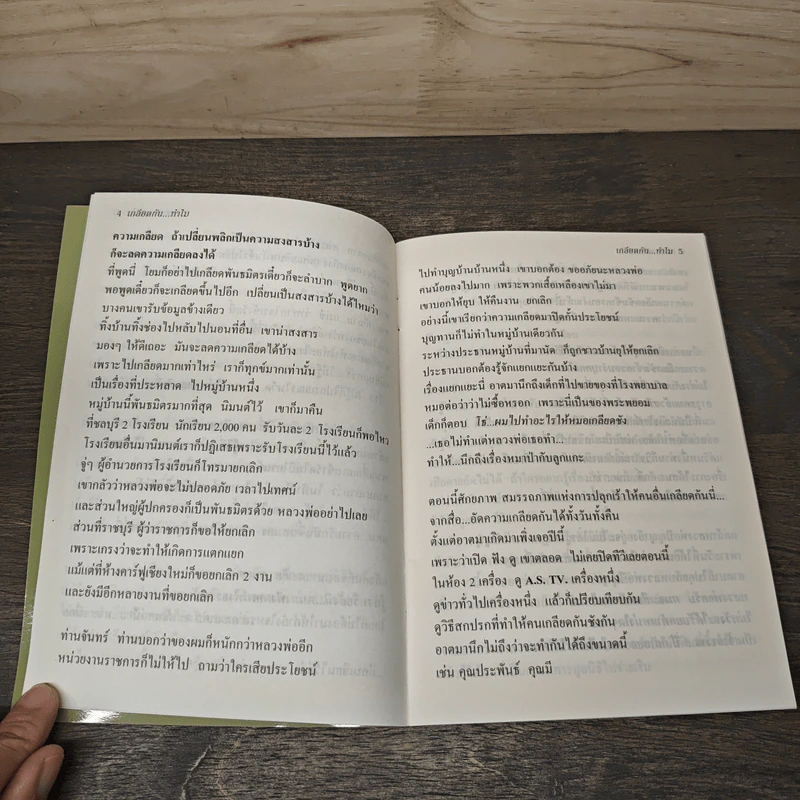 4 เกลียดกัน...ทำไม
ความเกลียด ถ้าเปลี่ยนพลิกเป็นความสงสารบ้าง
ก็จะลดความเกลียดลงได้
ที่พูดนี่ โยมก็อย่าไปเกลียดพันธมิตรเดี๋ยวก็จะลำบาก พูดยาก
พอพูดเดี๋ยวก็จะเกลียดขึ้นไปอีก เปลี่ยนเป็นสงสารบ้างได้ไหมว่า
บางคนเขารับข้อมูลข้างเดียว
ทิ้งบ้านทิ้งช่องไปหลับไปนอนที่อื่น เขาน่าสงสาร
มองๆ ให้ดีเถอะ มันจะลดความเกลียดได้บ้าง
เพราะไปเกลียดมากเท่าไหร่ เราก็ทุกข์มากเท่านั้น
เป็นเรื่องที่ประหลาด ไปหมู่บ้านหนึ่ง
หมู่บ้านนี้พันธมิตรมากที่สุด นิมนต์ไว้ เขาก็มาคืน
ที่ชลบุรี 2 โรงเรียน นักเรียน 2,000 คน รับวันละ 2 โรงเรียนก็พอไหว
โรงเรียนอื่นมานิมนต์เราก็ปฏิเสธเพราะรับโรงเรียนนี้ไว้แล้ว
จู่ๆ ผู้อำนวยการโรงเรียนก็โทรมายกเลิก
เขากลัวว่าหลวงพ่อจะไม่ปลอดภัย เวลาไปเทศน์
และส่วนใหญ่ผู้ปกครองก็เป็นพันธมิตรด้วย หลวงพ่ออย่าไปเลย
ส่วนที่ราชบุรี ผู้ว่าราชการก็ขอให้ยกเลิก
เพราะเกรงว่าจะทำให้เกิดการแตกแยก
แม้แต่ที่ห้างคาร์ฟูเชียงใหม่ก็ขอยกเลิก 2 งาน
และยังมีอีกหลายงานที่ขอยกเลิก
ท่านจันทร์ ท่านบอกว่าของผมก็หนักกว่าหลวงพ่ออีก
หน่วยงานราชการก็ไม่ให้ไป ถามว่าใครเสียประโยชน์
เกลียดกัน...ทำไม 5
ไปทำบุญบ้านบ้านหนึ่ง เขาบอกต้อง ขออภัยนะหลวงพ่อ
คนน้อยลงไปมาก เพราะพวกเสื้อเหลืองเขาไม่มา
เขาบอกให้ยุบ ให้คืนงาน ยกเลิก
อย่างนี้เขาเรียกว่าความเกลียดมาปิดกั้นประโยชน์
บุญทานก็ไม่ทำในหมู่บ้านเดียวกัน
ระหว่างประธานหมู่บ้านที่มานัด ก็ถูกชาวบ้านยุให้ยกเลิก
ประธานบอกต้องรู้จักแยกแยะกันบ้าง
เรื่องแยกแยะนี่ อาตมานึกถึงเด็กที่ไปขายของที่โรงพยาบาล
หมอต่อว่าว่าไม่ซื้อหรอก เพราะนี่เป็นของพระพยอม
เด็กก็ตอบ โธ่...ผมไปทำอะไรให้หมอเกลียดชัง
...เธอไม่ทำแต่หลวงพ่อเธอทำ...
ทำให้...นึกถึงเรื่องหมาป่ากับลูกแกะ
ตอนนี้ศักยภาพ สมรรถภาพแห่งการปลุกเร้าให้คนอื่นเกลียดกันนี่...
จากสื่อ...อัดความเกลียดกันได้ทั้งวันทั้งคืน
ตั้งแต่อาตมาเกิดมาเพิ่งเจอปีนี้
เพราะว่าเปิด ฟัง ดู เขาตลอด ไม่เคยปิดทีวีเลยตอนนี้
ในห้อง 2 เครื่อง ดู A.S. TV. เครื่องหนึ่ง
ดูข่าวทั่วไปเครื่องหนึ่ง แล้วก็เปรียบเทียบกัน
ดูวิธีสกปรกที่ทำให้คนเกลียดกันชังกัน
อาตมานึกไม่ถึงว่าจะทำกันได้ถึงขนาดนี้
เช่น คุณประพันธ์ คุณมี